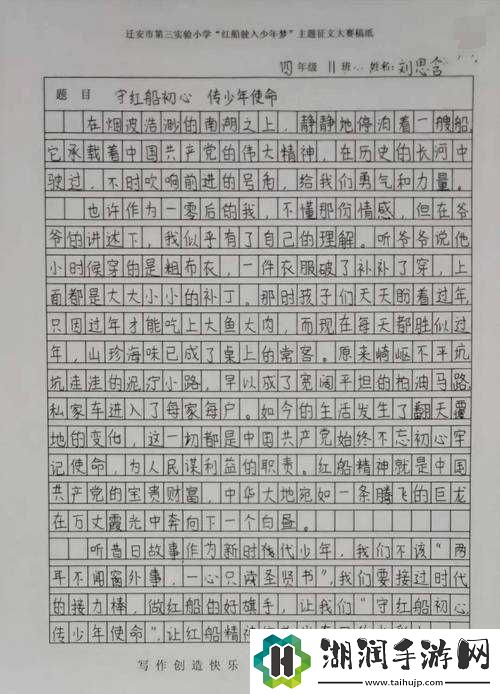 迁安市第三实验小学“红船驶入少年梦”主题征文大赛稿纸
四年级 11班 姓名：刘思含
题目 守红船初心 传少年使命
在烟波浩渺的南湖之上，静静地停泊着一艘船，
它承载着中国共产党的伟大精神，在历史的长河中
驶过，不时吹响前进的号角，给我们勇气和力量。
也许作为一零后的我，不懂那份情感，但在爷
爷的讲述下，我似乎有了自己的理解。听爷爷说他
小时候穿的是粗布衣，一件衣服破了补补了穿，上
面都是大大小小的补丁。那时孩子们天天盼着过年，
只因过年才能吃上大鱼大肉，而现在每天都胜似过
年，山珍海味已成了桌上的常客。原来崎岖不平坑
坑洼洼的泥泞小路，早以成了宽阔平坦的柏油马路，
私家车进入了每家每户。如今的生活发生了翻天覆
地的变化，这一切都是中国共产党始终不忘初心牢
记使命，为人民谋利益的职责。红船精神就是中国
共产党的宝贵财富，中华大地宛如一条腾飞的巨龙
在万丈霞光中奔向下一个白昼。
听昔日故事作为新时代少年，我们不该“两
耳不闻窗外事，一心只读圣贤书”，我们要接过时代
的接力棒，做红船的好旗手，让我们“守红船初心，
传少年使命”，让红船精神
写作创造快乐
湖润手游网
www.taihujp.com